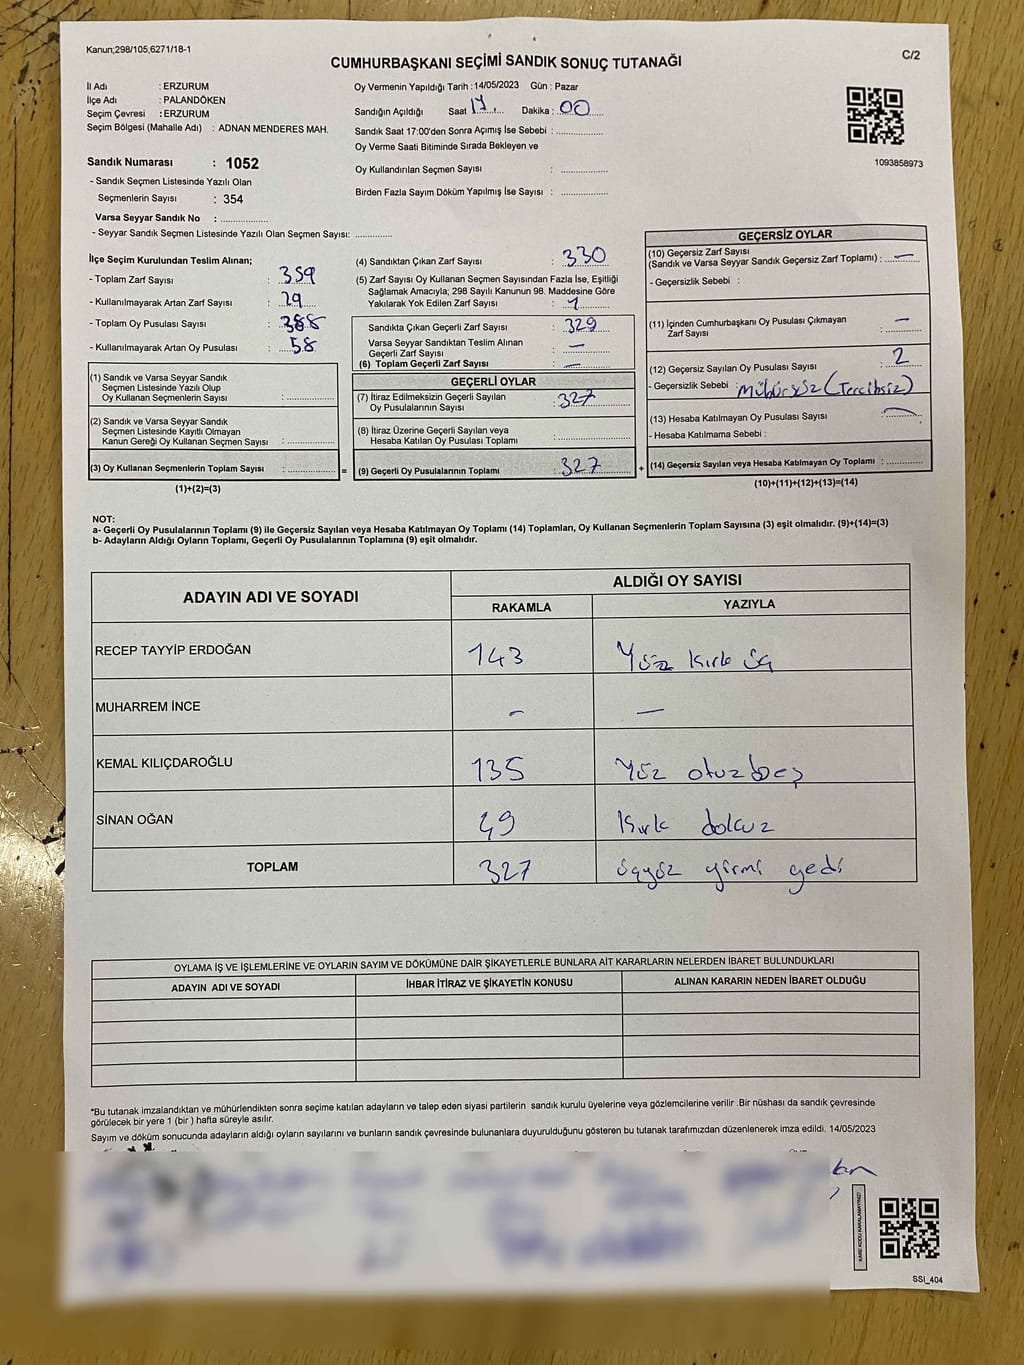 Kanun;298/105,6271/18-1
C/2
CUMHURBAŞKANI SEÇİMİ SANDIK SONUÇ TUTANAĞI
İl Adı : ERZURUM
İlçe Adı : PALANDÖKEN
Seçim Çevresi : ERZURUM
Seçim Bölgesi (Mahalle Adı) : ADNAN MENDERES MAH.
Sandık Numarası : 1052
- Sandık Seçmen Listesinde Yazılı Olan
Seçmenlerin Sayısı : 354
Varsa Seyyar Sandık No : ..................
- Seyyar Sandık Seçmen Listesinde Yazılı Olan Seçmen Sayısı: ..............
Oy Vermenin Yapıldığı Tarih : 14/05/2023 Gün : Pazar
Sandığın Açıldığı Saat 17 Dakika : 00
Sandık Saat 17:00'den Sonra Açımış İse Sebebi : ..................
Oy Verme Saati Bitiminde Sırada Bekleyen ve
Oy Kullandırılan Seçmen Sayısı : ..................
Birden Fazla Sayım Döküm Yapılmış İse Sayısı : ..................
1093858973
İlçe Seçim Kurulundan Teslim Alınan;
- Toplam Zarf Sayısı : 359
- Kullanılmayarak Artan Zarf Sayısı : 29
- Toplam Oy Pusulası Sayısı : 388
- Kullanılmayarak Artan Oy Pusulası : 58
(1) Sandık ve Varsa Seyyar Sandık
Seçmen Listesinde Yazılı Olup
Oy Kullanan Seçmenlerin Sayısı : ..................
(2) Sandık ve Varsa Seyyar Sandık
Seçmen Listesinde Kayıtlı Olmayan
Kanun Gereği Oy Kullanan Seçmen Sayısı : ..................
(3) Oy Kullanan Seçmenlerin Toplam Sayısı : .................. =
(1)+(2)=(3)
(4) Sandıktan Çıkan Zarf Sayısı : 330
(5) Zarf Sayısı Oy Kullanan Seçmen Sayısından Fazla İse, Eşitliği
Sağlamak Amacıyla; 298 Sayılı Kanunun 98. Maddesine Göre
Yakılarak Yok Edilen Zarf Sayısı : 1
Sandıkta Çıkan Geçerli Zarf Sayısı : 329
Varsa Seyyar Sandıktan Teslim Alınan
Geçerli Zarf Sayısı : —
(6) Toplam Geçerli Zarf Sayısı : —
GEÇERLİ OYLAR
(7) İtiraz Edilmeksizin Geçerli Sayılan
Oy Pusulalarının Sayısı : 327
(8) İtiraz Üzerine Geçerli Sayılan veya
Hesaba Katılan Oy Pusulası Toplamı : ..................
(9) Geçerli Oy Pusulalarının Toplamı : 327 +
GEÇERSİZ OYLAR
(10) Geçersiz Zarf Sayısı
(Sandık ve Varsa Seyyar Sandık Geçersiz Zarf Toplamı) : —
- Geçersizlik Sebebi :
(11) İçinden Cumhurbaşkanı Oy Pusulası Çıkmayan
Zarf Sayısı : —
(12) Geçersiz Sayılan Oy Pusulası Sayısı : 2
- Geçersizlik Sebebi : mühürsüz (Tercihsiz)
(13) Hesaba Katılmayan Oy Pusulası Sayısı : —
- Hesaba Katılmama Sebebi :
(14) Geçersiz Sayılan veya Hesaba Katılmayan Oy Toplamı : ............
(10)+(11)+(12)+(13)=(14)
NOT:
a- Geçerli Oy Pusulalarının Toplamı (9) ile Geçersiz Sayılan veya Hesaba Katılmayan Oy Toplamı (14) Toplamları, Oy Kullanan Seçmenlerin Toplam Sayısına (3) eşit olmalıdır. (9)+(14)=(3)
b- Adayların Aldığı Oyların Toplamı, Geçerli Oy Pusulalarının Toplamına (9) eşit olmalıdır.
ADAYIN ADI VE SOYADI ALDIĞI OY SAYISI
RAKAMLA YAZIYLA
RECEP TAYYİP ERDOĞAN 143 Yüz kırk üç
MUHARREM İNCE – —
KEMAL KILIÇDAROĞLU 135 Yüz otuzbeş
SİNAN OĞAN 49 kırk dokuz
TOPLAM 327 üçyüz yirmi yedi
OYLAMA İŞ VE İŞLEMLERİNE VE OYLARIN SAYIM VE DÖKÜMÜNE DAİR ŞİKAYETLERLE BUNLARA AİT KARARLARIN NELERDEN İBARET BULUNDUKLARI
ADAYIN ADI VE SOYADI İHBAR İTİRAZ VE ŞİKAYETİN KONUSU ALINAN KARARIN NEDEN İBARET OLDUĞU
*Bu tutanak imzalandıktan ve mühürlendikten sonra seçime katılan adayların ve talep eden siyasi partilerin sandık kurulu üyelerine veya gözlemcilerine verilir .Bir nüshası da sandık çevresinde
görülecek bir yere 1 (bir ) hafta süreyle asılır.
Sayım ve döküm sonucunda adayların aldığı oyların sayılarını ve bunların sandık çevresinde bulunanlara duyurulduğunu gösteren bu tutanak tarafımızdan düzenlenerek imza edildi. 14/05/2023
KARE KODU KARALAMAYINIZ!
SSI_404